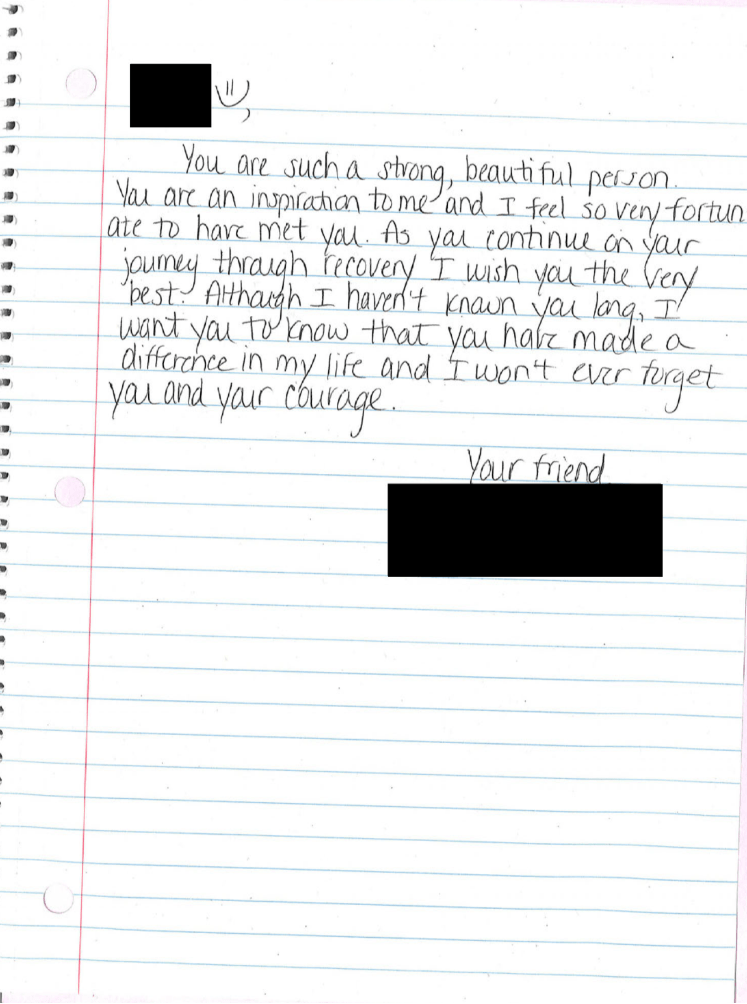 You are such a strong, beautiful person.
You are an inspiration to me and I feel so very fortun
ate to have met you. As you continue on your
journey through recovery I wish you the very
best. Although I haven't known you long, I
want you to know that you have made a
difference in my life and I won't ever forget
you and your courage.
Your friend